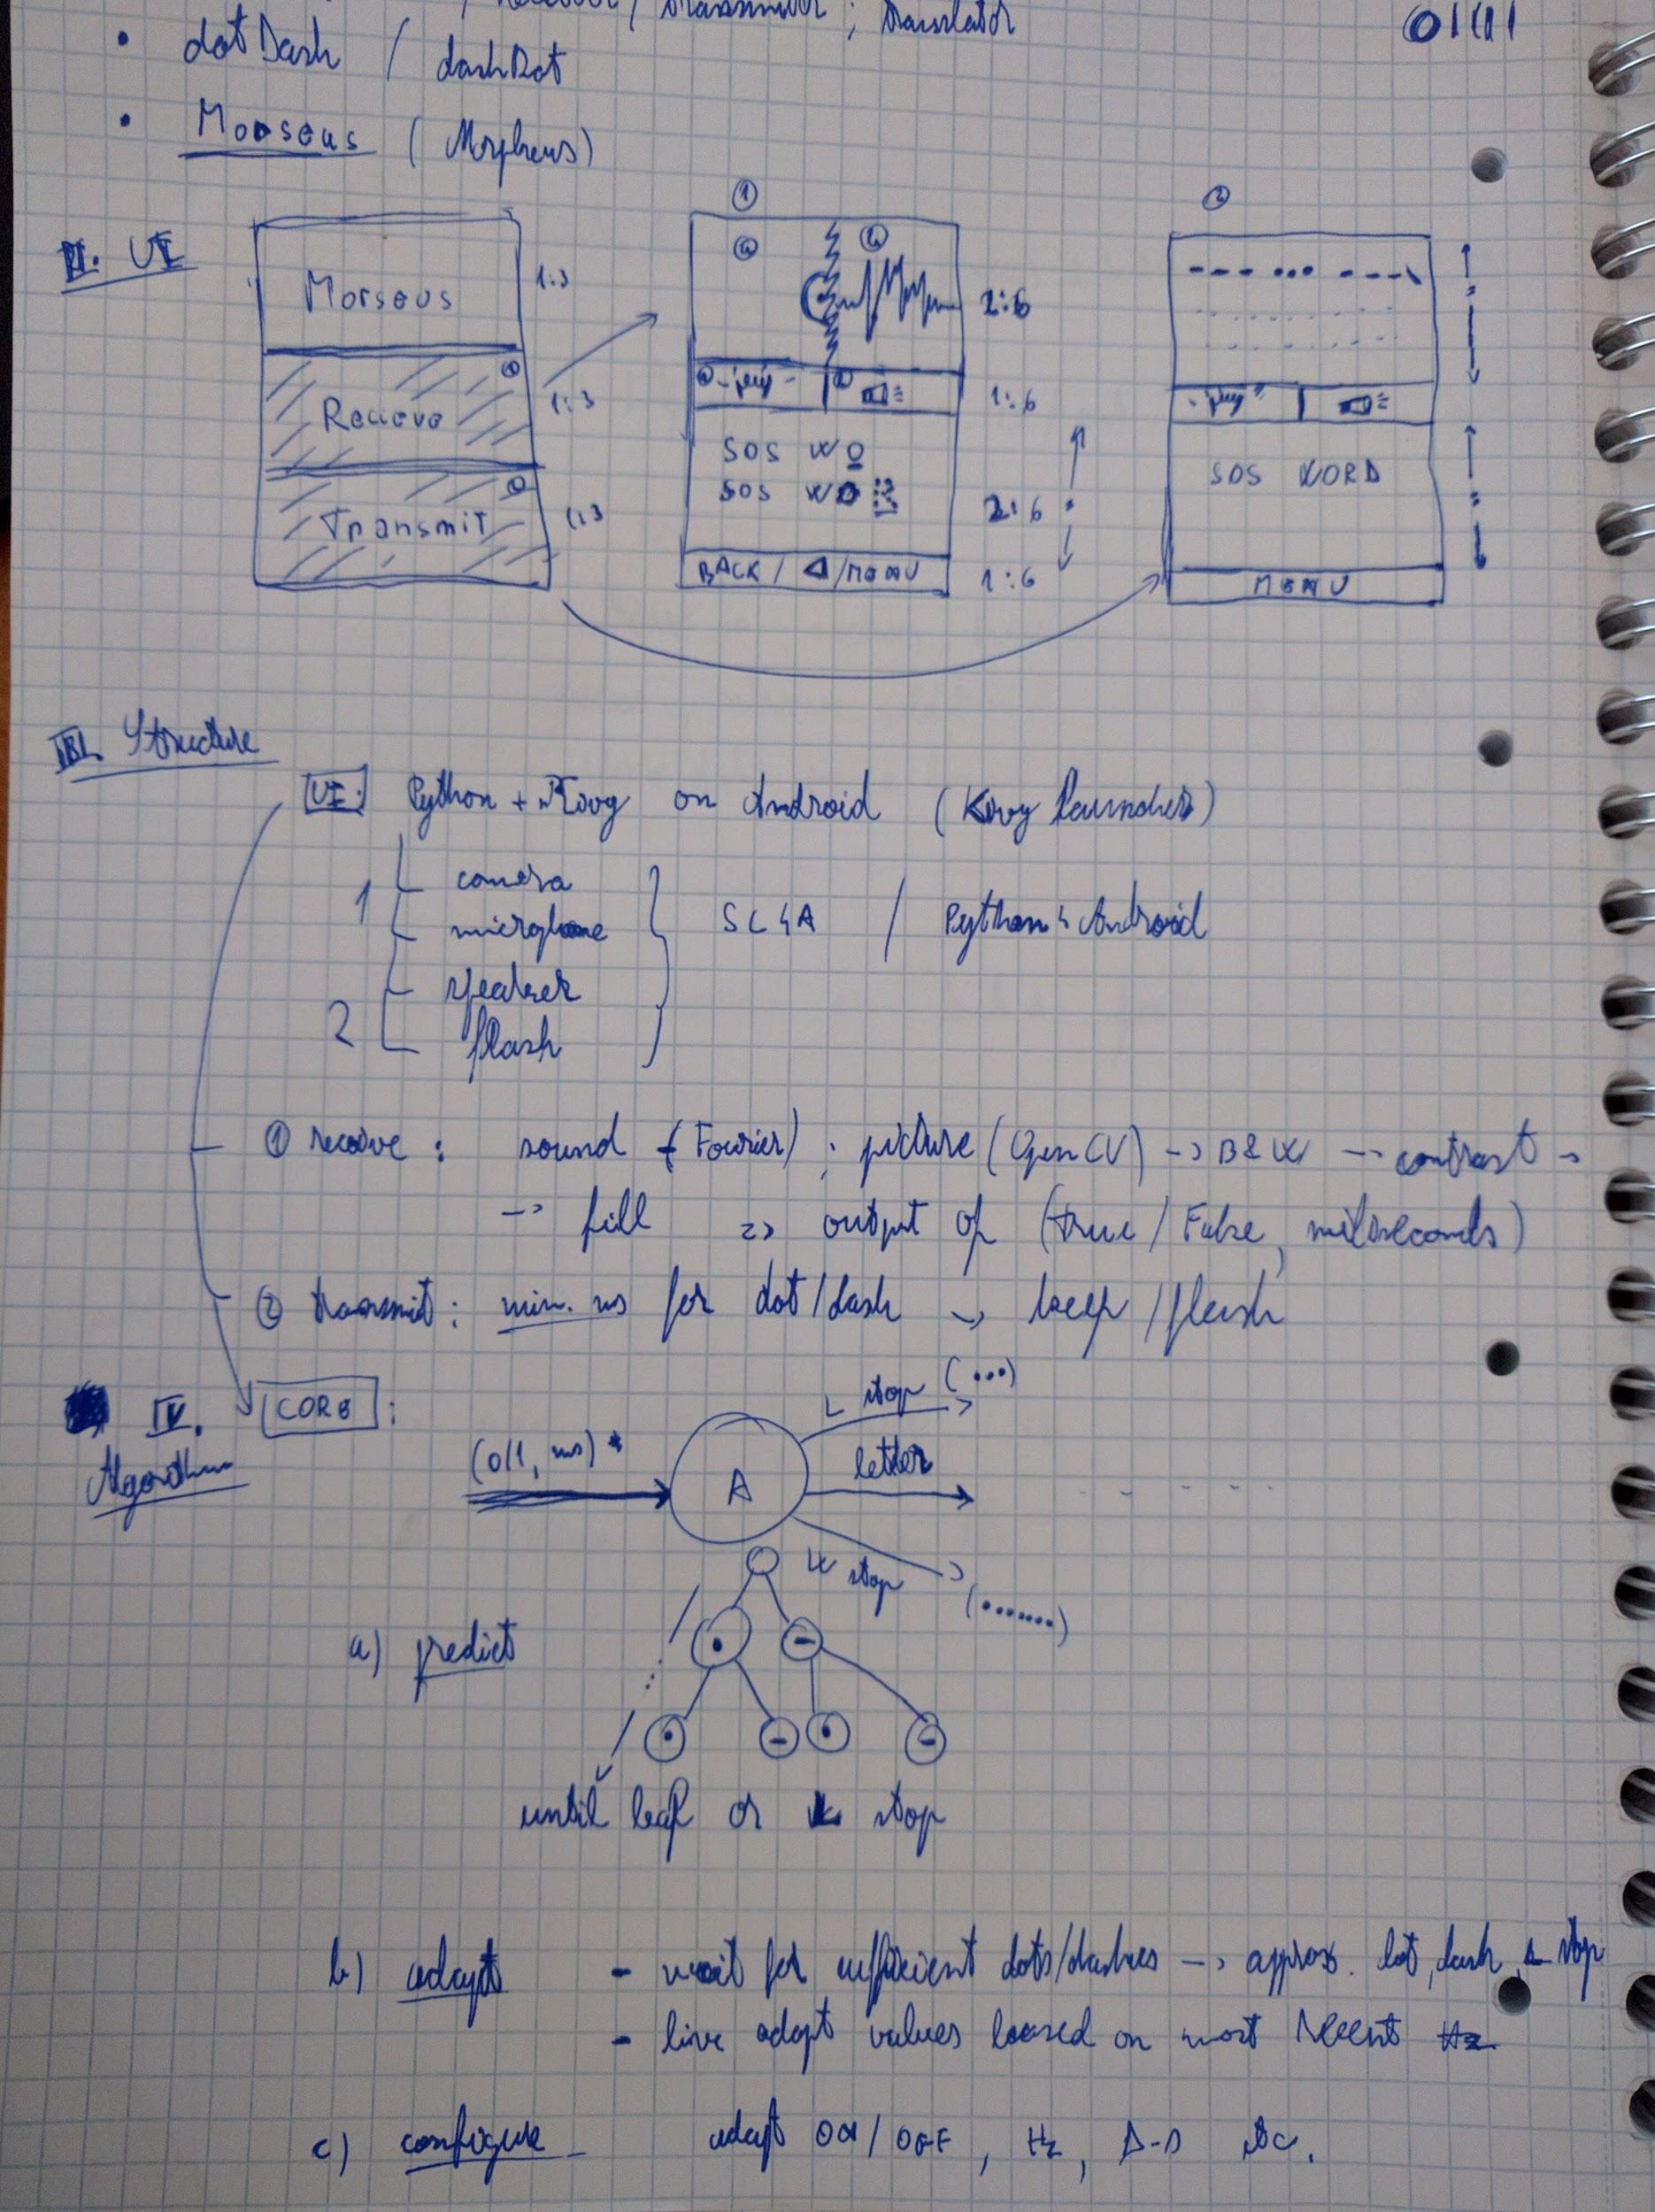 / receiver / transmitter ; translator
• dotDash / dashDot
• Morseus (Morpheus)
II. UI
Morseus
1:3
Recieve
1:3
Transmit
1:3
1
a
b
2:6
1:6
SOS WO
SOS WO
2:6
BACK / ◁ / MENU
1:6
2
--- ... ---
SOS WORD
MENU
III. Structure
UI: Python + Kivy on Android (Kivy Launcher)
1
camera
microphone
SL4A / Python4Android
2
speaker
flash
① receive : sound (Fourier) ; picture (OpenCV) -> B&W -> contrast ->
-> fill => output of (True / False, miliseconds)
② transmit : min. ms for dot/dash -> beep / flash
IV. CORE :
Algorithm
(0/1, ms) *
A
L stop (...)
letter
W stop
(.......)
a) predict
until leaf or L stop
b) adapt - wait for sufficient dots/dashes -> approx. dot, dash, L stop
- live adapt values based on most recent Hz
c) configure adapt ON/OFF, Hz, D-D etc.